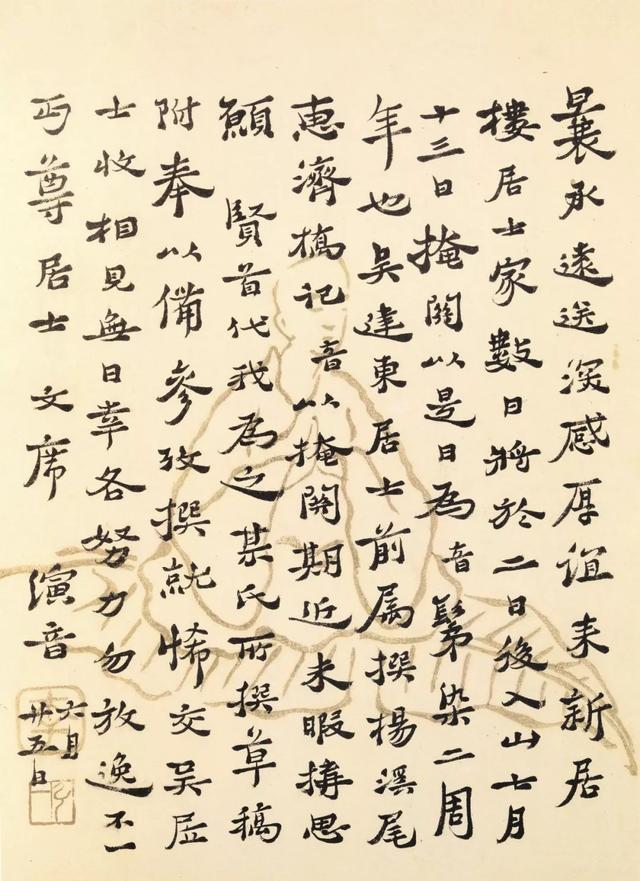 曩承遠送深感厚誼来新居
樓居士家數日將於二日後入山七月
十三日掩關以是日為音鬀染二周
年也吳建東居士前属撰楊溪尾
惠濟橋記音以掩關期近未暇搆思
願賢首代我為之某氏所撰草稿
附奉以備參攷撰就悕交吳居
士收相見無日幸各努力勿放逸不一
丏尊居士文席 演音 六月
廿五日